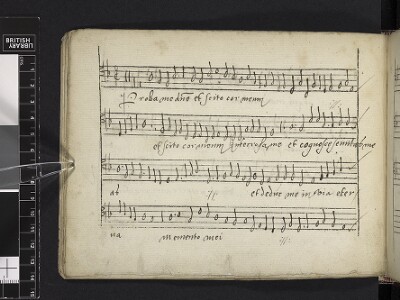 BRITISH
LIBRARY
Proba me dne et scito cor meum
et scito cor meum Interroga me et cognosce semitas me
as et deduc me in via eter
na memento mei